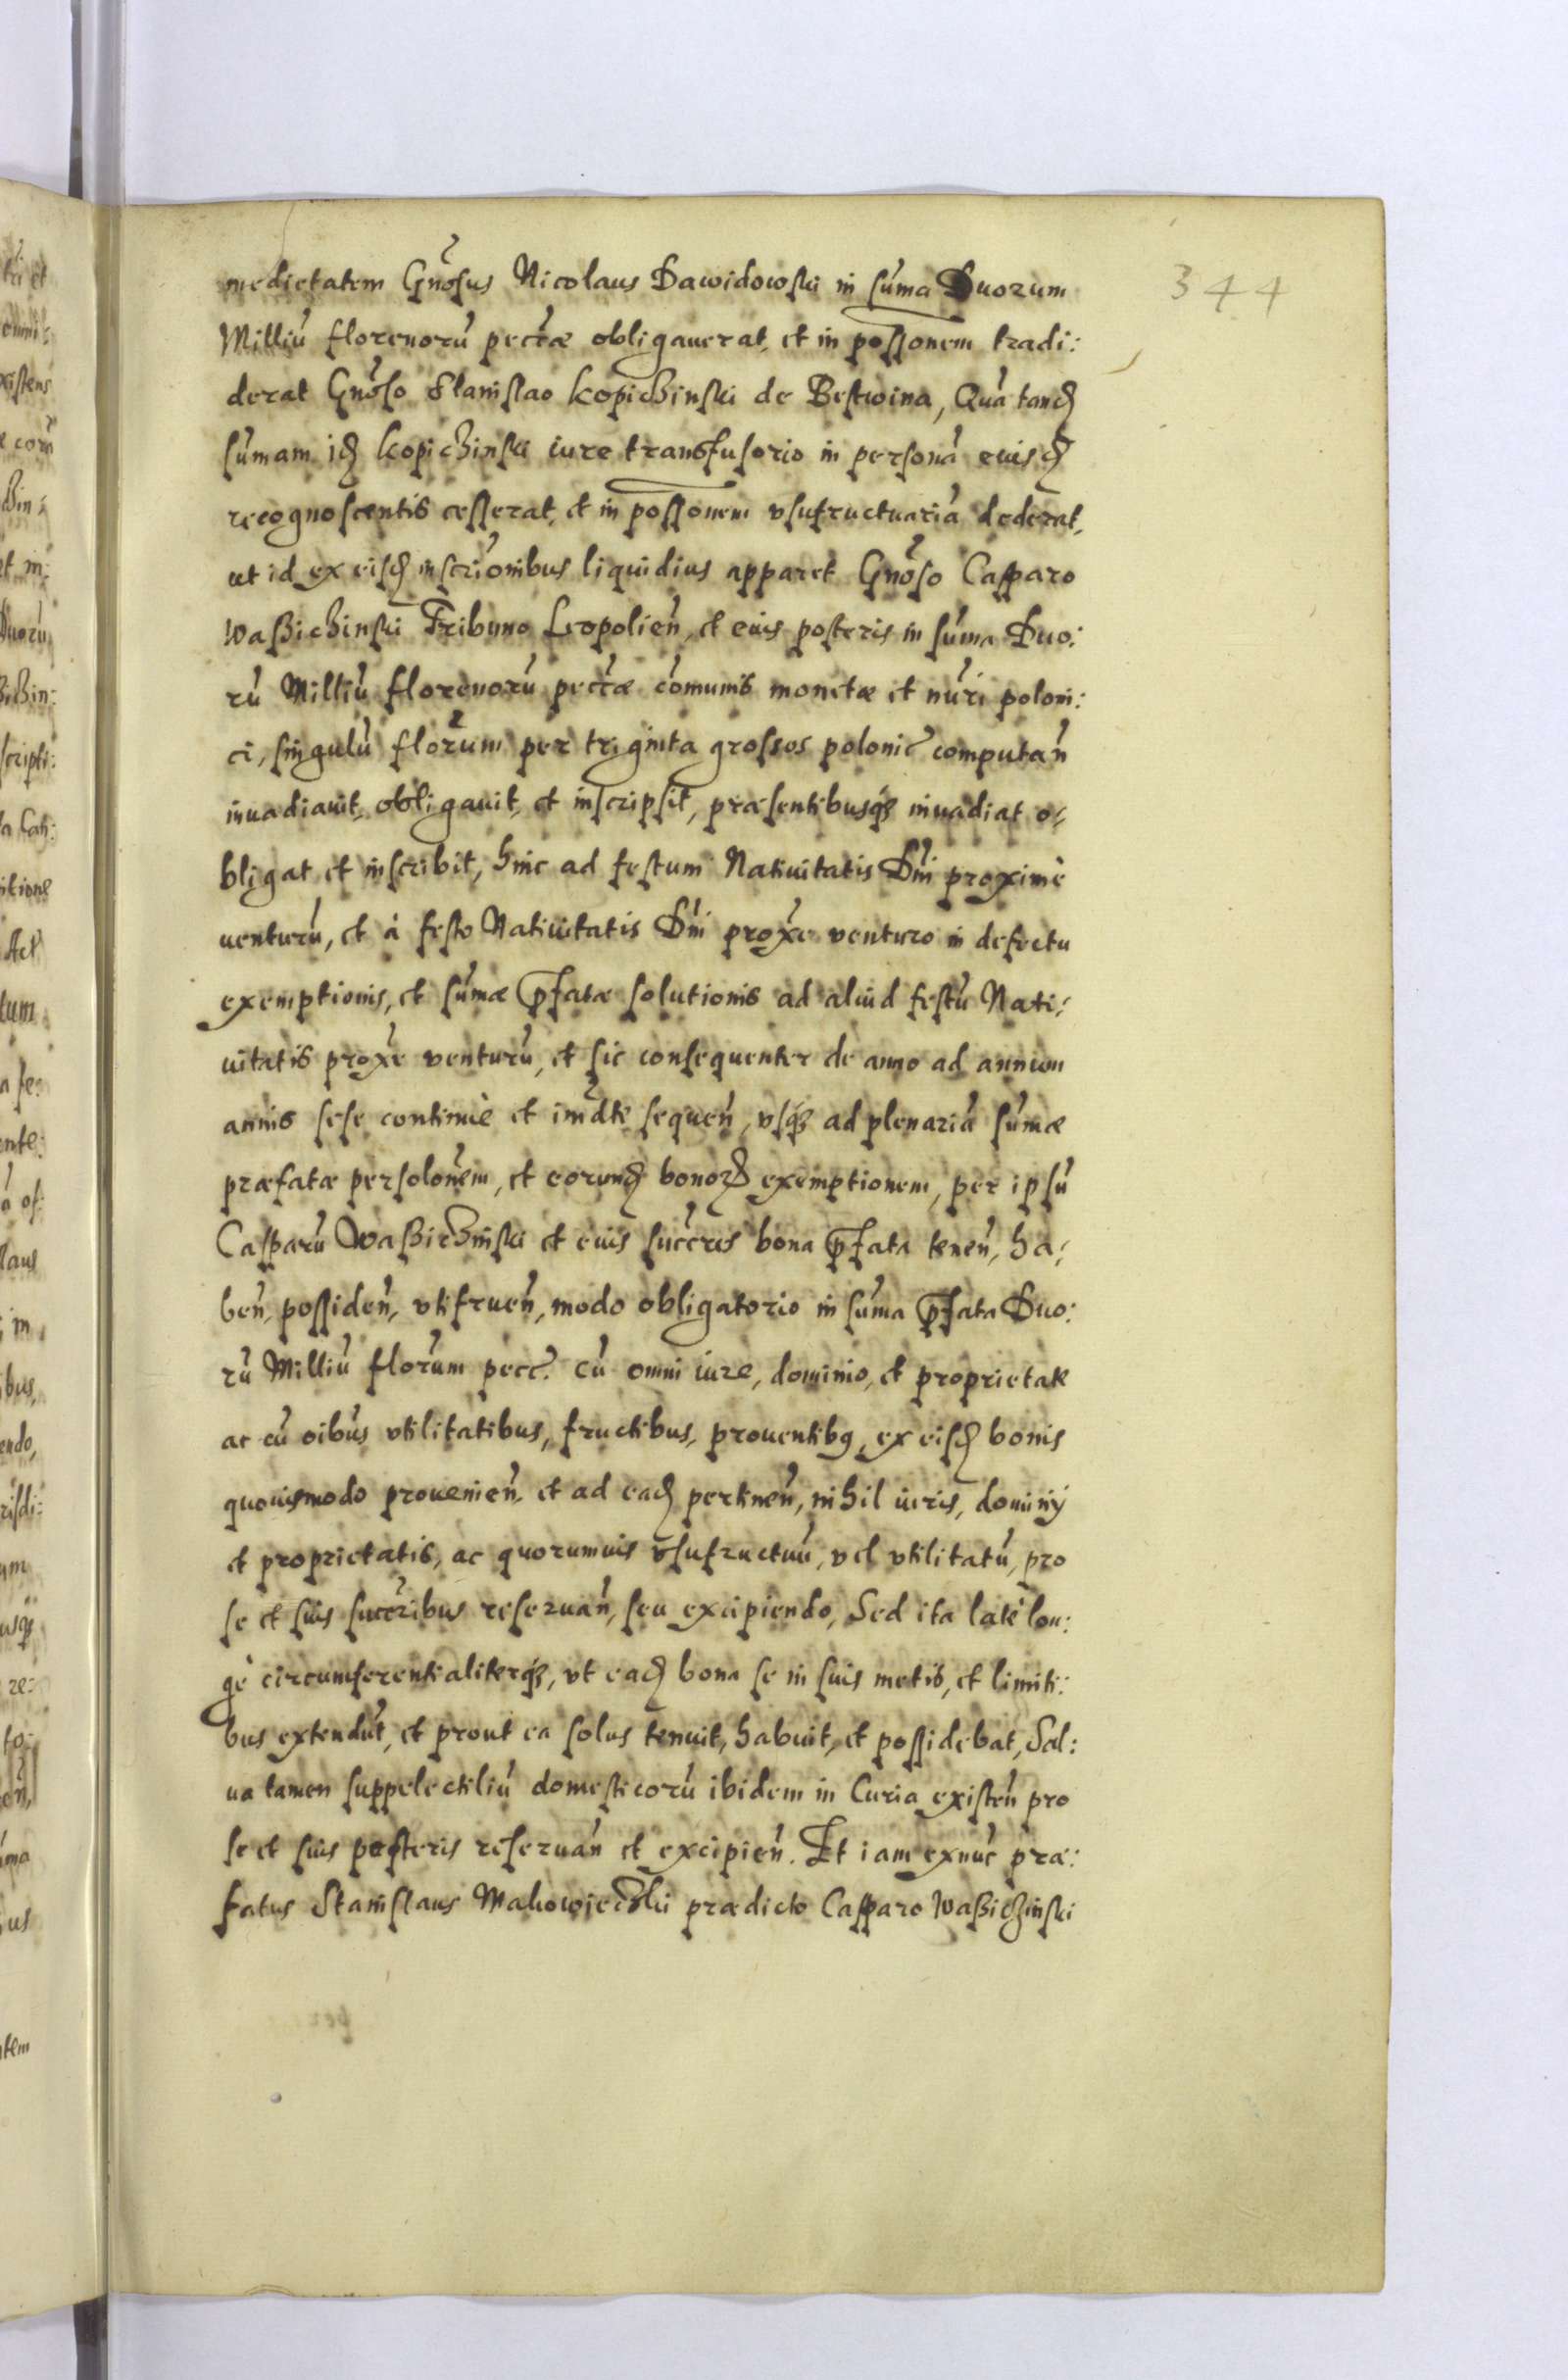 344
medietatem Gnosus Nicolaus Dawidowski in suma Duorum
Milliu florenoru pectæ obligauerat, et in possonem tradi:
derat Gnoso Stanislao Kopichinski de Bestwina, Qua tandẽ
sumam idẽ Kopichinski iure transfusorio in persona euisdẽ
recognoscentis cesserat, et in possonem vsufructuaria dederat,
ut id ex eisdẽ inscrionibus liquidius apparet Gnoso Casparo
Waßichinski Tribuno Leopolien, et euis posteris in suma Duo:
ru Milliu florenoru pectæ comunis monetæ et nuri poloni:
ci, singulu florum per triginta grossos polonic computan
inuadiauit, obligauit, et inscripsit, præsentibusq; inuadiat o:
bligat et inscribit, hinc ad festum Natiuitatis Dni proximè
venturu, et à festo Natiuitatis Dni proxe venturo in defectu
exemptionis, et sumæ pfatæ solutionis ad aliud festu Nati:
uitatis proxe venturu, et sic consequenter de anno ad annum
annis sese continuè et imdte sequen, vsq; ad plenaria sumæ
præfatæ persolonem, et eorundẽ bonorũ exemptionem, per ipsu
Casparu Waßichinski et euis succeris bona pfata tenen, ha:
ben, possiden, vtifruen, modo obligatorio in suma pfata Duo:
ru Milliu florum pecc. cu omni iure, dominio, et proprietate
ac cu oibus vtilitatibus, fructibus, prouentibq, ex eisdẽ bonis
quouismodo prouenien, et ad eadẽ pertinen, nihil iuris, dominij
et proprietatis, ac quorumuis vsufructuu, vel vtilitatu, pro
se et suis succribus reseruan, seu excipiendo, Sed ita latè lon:
gè circumferentialiterq;, vt eadẽ bona se in suis metis, et limiti:
bus extendut, et prout ea solus tenuit, habuit, et possidebat, Sal:
ua tamen suppelectiliu domesticoru ibidem in Curia existen pro
se et suis posteris reseruan et excipien. Et iam exnuc præ:
fatus Stanislaus Makowiecski prædicto Casparo Waßichinski